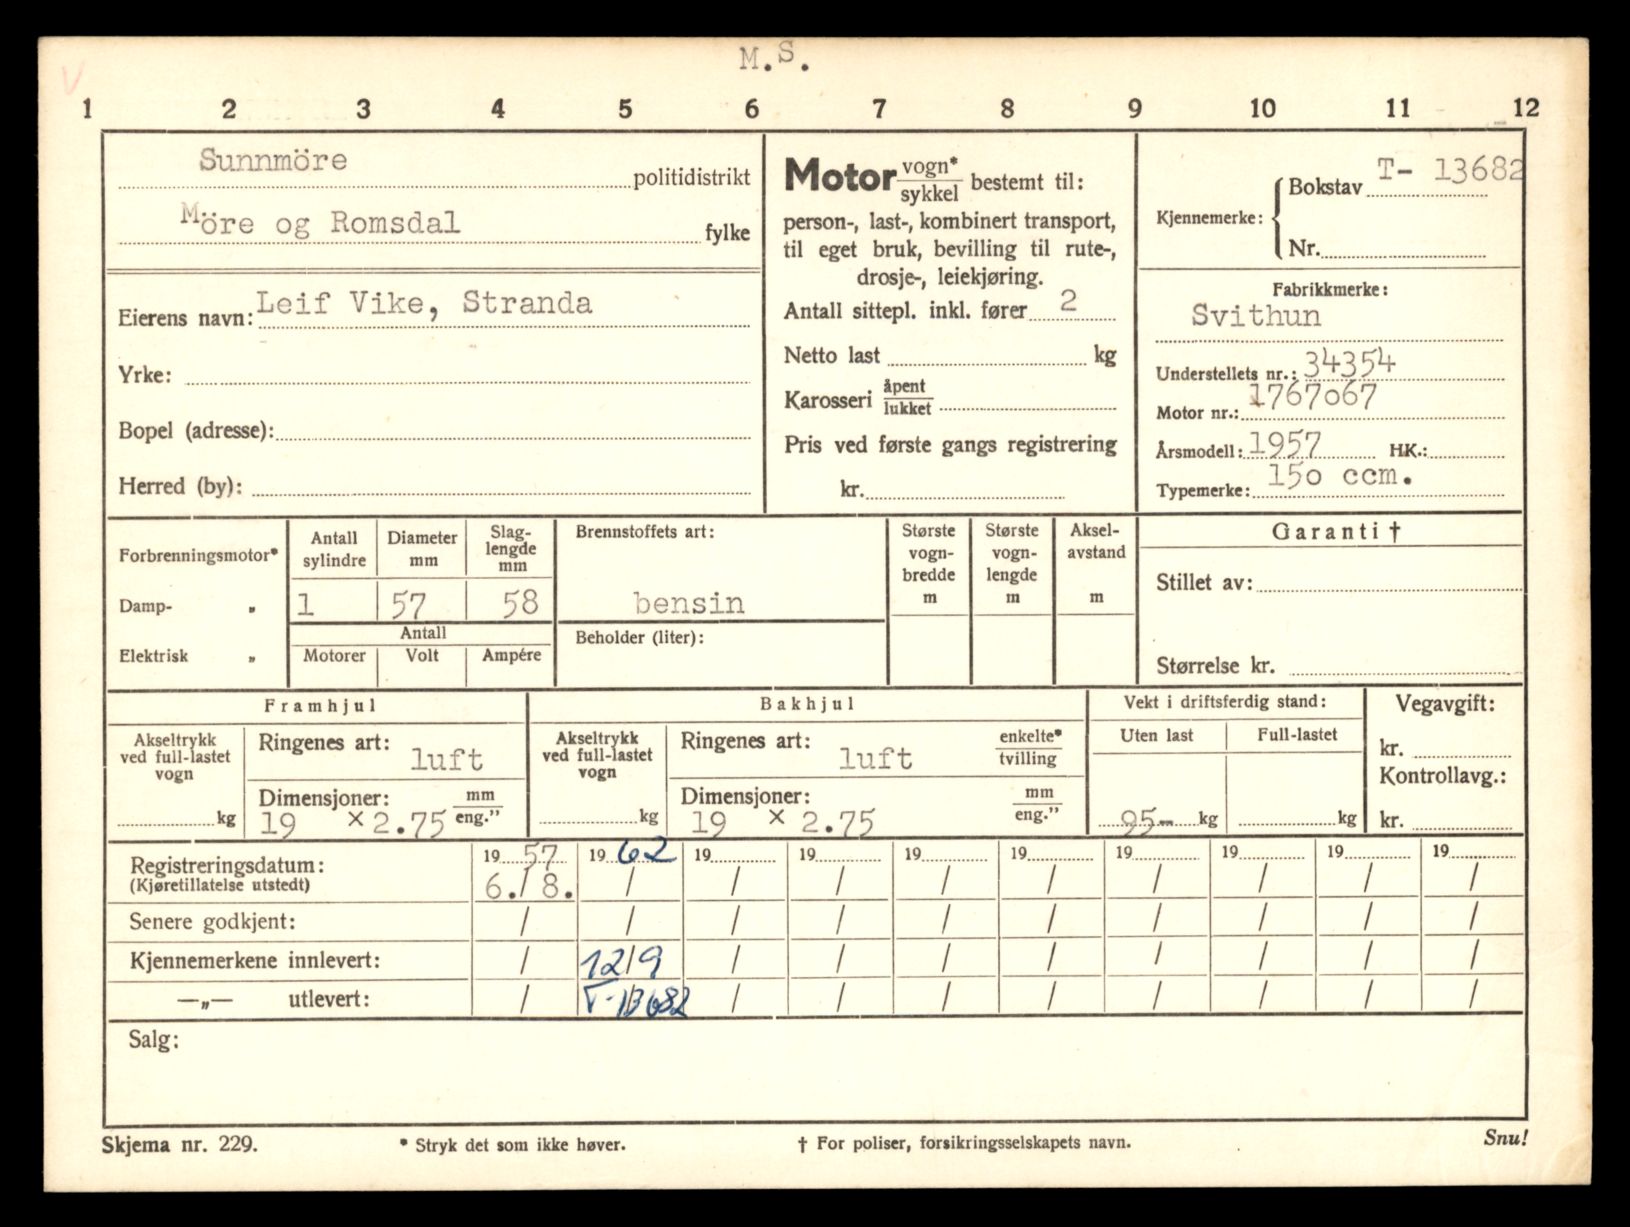 V
M.S.
1 2 3 4 5 6 7 8 9 10 11 12
Sunnmöre politidistrikt
Möre og Romsdal fylke
Eierens navn: Leif Vike, Stranda
Yrke:
Bopel (adresse):
Herred (by):
Motor vogn* sykkel bestemt til:
person-, last-, kombinert transport,
til eget bruk, bevilling til rute-,
drosje-, leiekjøring.
Antall sittepl. inkl. fører 2
Netto last kg
Karosseri åpent lukket
Pris ved første gangs registrering
kr.
T- 13682
Kjennemerke: { Bokstav
Nr.
Fabrikkmerke:
Svithun
Understellets nr.: 34354
Motor nr.: 1767o67
Årsmodell: 1957 HK.:
Typemerke: 15o ccm.
Forbrenningsmotor*
Damp- „
Elektrisk „
Antall sylindre
1
Diameter mm
57
Slag-
lengde
mm
58
Antall
Motorer Volt Ampére
Brennstoffets art:
bensin
Beholder (liter):
Største
vogn-
bredde
m
Største
vogn-
lengde
m
Aksel-
avstand
m
Garanti †
Stillet av:
Størrelse kr.
Framhjul
Akseltrykk
ved full-lastet
vogn
kg
Ringenes art: luft
Dimensjoner: mm
19 × 2.75 eng.”
Bakhjul
Akseltrykk
ved full-lastet
vogn
kg
Ringenes art: luft enkelte* tvilling
Dimensjoner: mm
19 × 2.75 eng.”
Vekt i driftsferdig stand:
Uten last Full-lastet
95- kg kg
Vegavgift:
kr.
Kontrollavg.:
kr.
Registreringsdatum: 19 57 19 62 19 19 19 19 19 19 19 19
(Kjøretillatelse utstedt) 6./8. / / / / / / / / /
Senere godkjent: / / / / / / / / / /
Kjennemerkene innlevert: / 12/9 / / / / / / / /
—„— utlevert: / T-13682 / / / / / / / /
Salg:
Skjema nr. 229. * Stryk det som ikke høver. † For poliser, forsikringsselskapets navn. Snu!